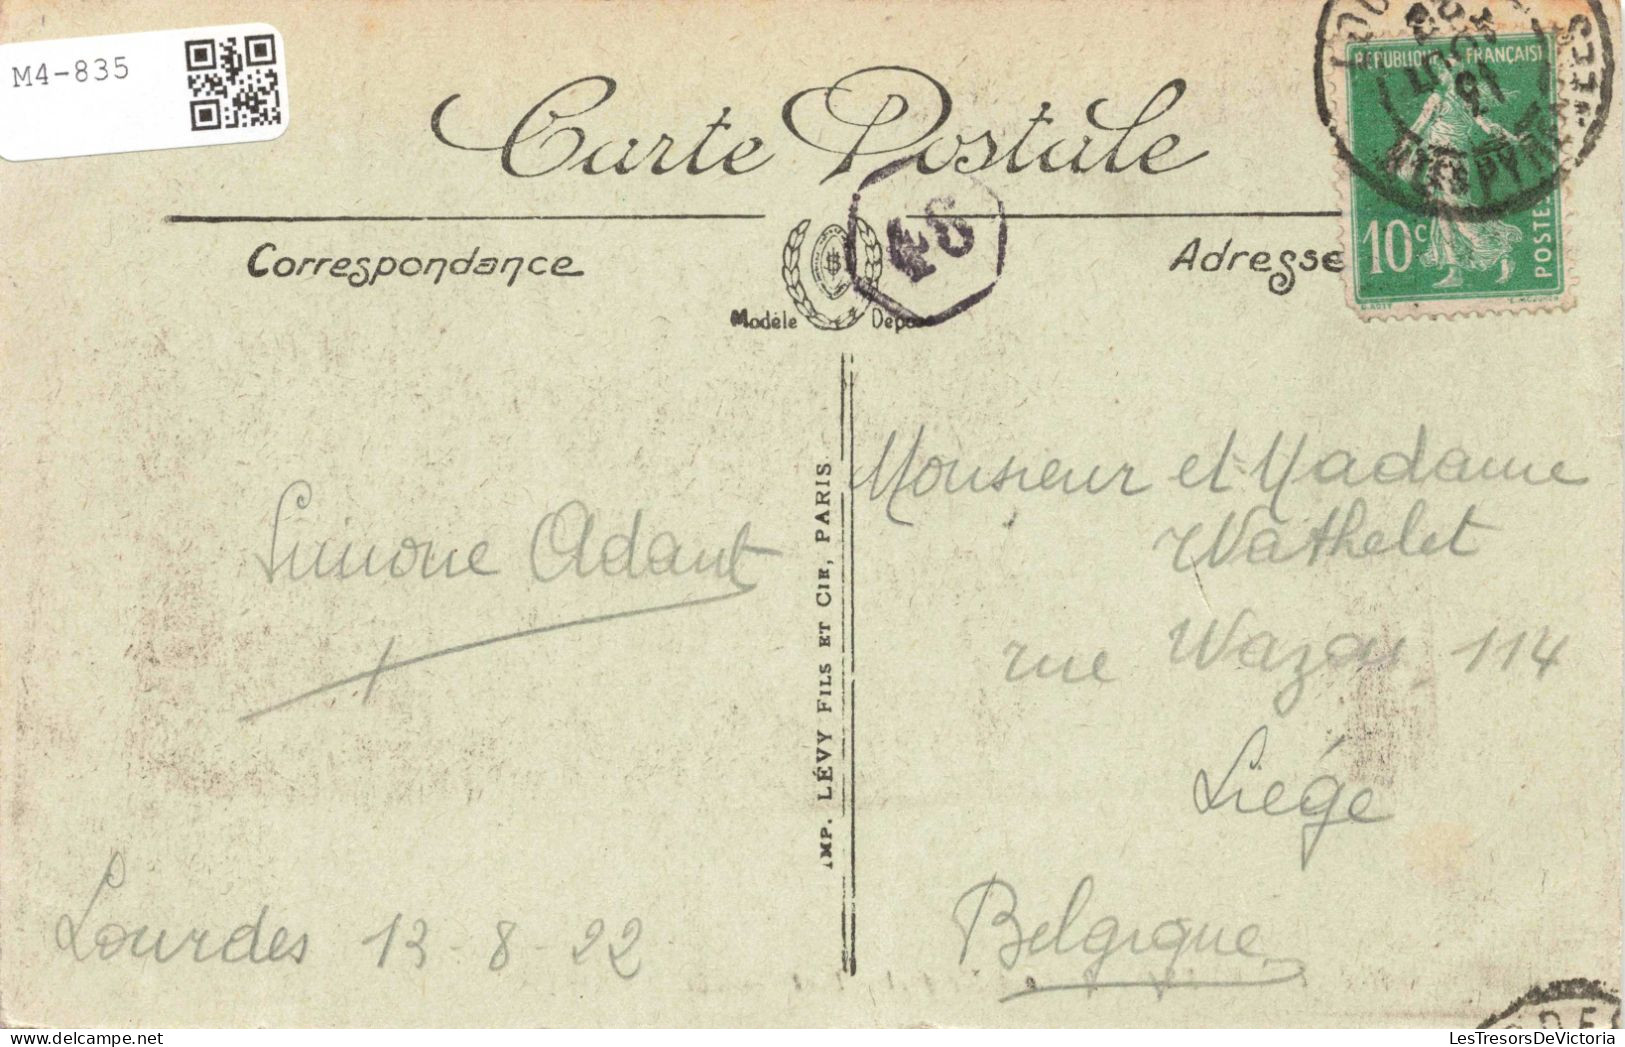 M4-835
Carte Postale
Correspondance
Adresse
Modèle Déposé
REPUBLIQUE FRANÇAISE
10c
POSTES
IMP. LÉVY FILS ET CIE, PARIS
Simone Adant
Lourdes 13-8-22
Monsieur et Madame
Wathelet
rue Wazon 114
Liége
Belgique
LesTresorsDeVictoria